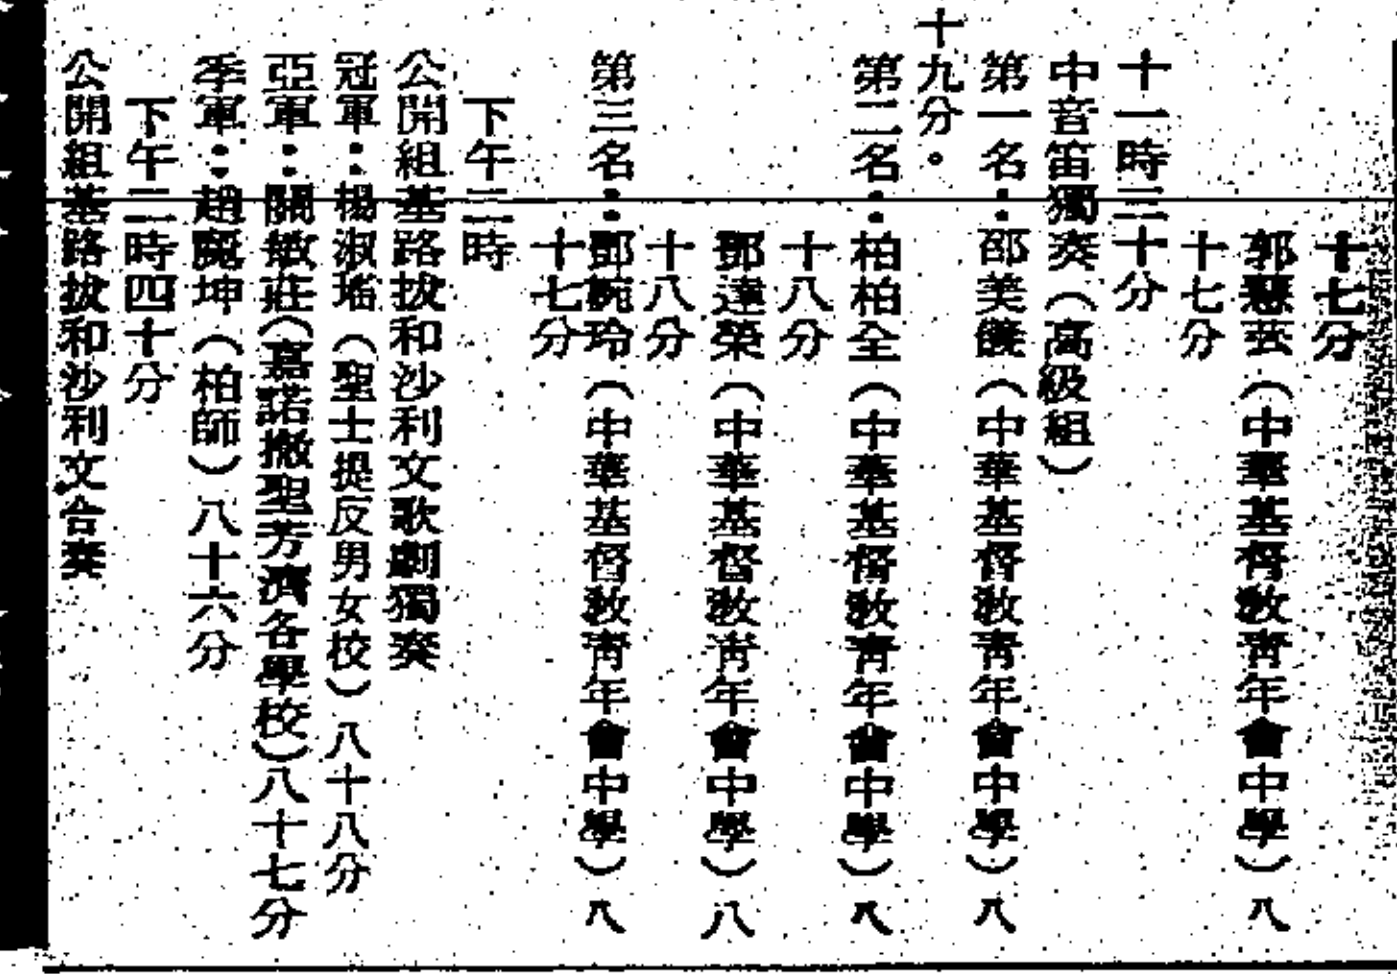 十七分
郭慧芸(中華基督教青年會中學)八
十七分
十一時三十分
中音笛獨奏(高級組)
第一名：邵美儀(中華基督教青年會中學)八
十九分。
第二名：柏柏全(中華基督教青年會中學)八
十八分
鄧達榮(中華基督教青年會中學)八
十八分
第三名：鄧婉玲(中華基督教青年會中學)八
十七分
下午二時
公開組基路拔和沙利文歌劇獨奏
冠軍：楊淑瑤(聖士提反男女校)八十八分
亞軍：關敏莊(嘉諾撒聖芳濟各學校)八十七分
季軍：趙坤(柏師)八十六分
下午二時四十分
公開組基路拔和沙利文合奏